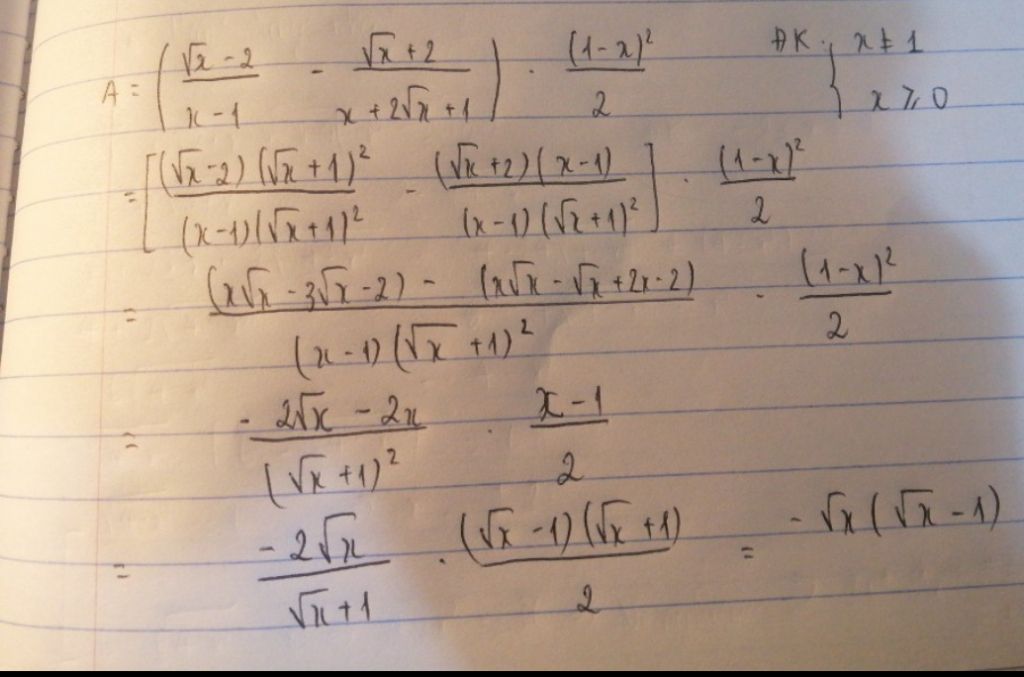 A = ( (√x - 2)/(x - 1) - (√x + 2)/(x + 2√x + 1) ) . (1-x)²/2 ĐK: { x ≠ 1
x ⩾ 0
= [ (√x - 2)(√x + 1)²/((x-1)(√x+1)²) - (√x + 2)(x-1)/((x-1)(√x+1)²) ] . (1-x)²/2
= ((x√x - 3√x - 2) - (x√x - √x + 2x - 2))/((x-1)(√x + 1)²) . (1-x)²/2
= (- 2√x - 2x)/((√x + 1)²) . (x - 1)/2
= (- 2√x)/(√x + 1) . ((√x - 1)(√x + 1))/2 = - √x (√x - 1)